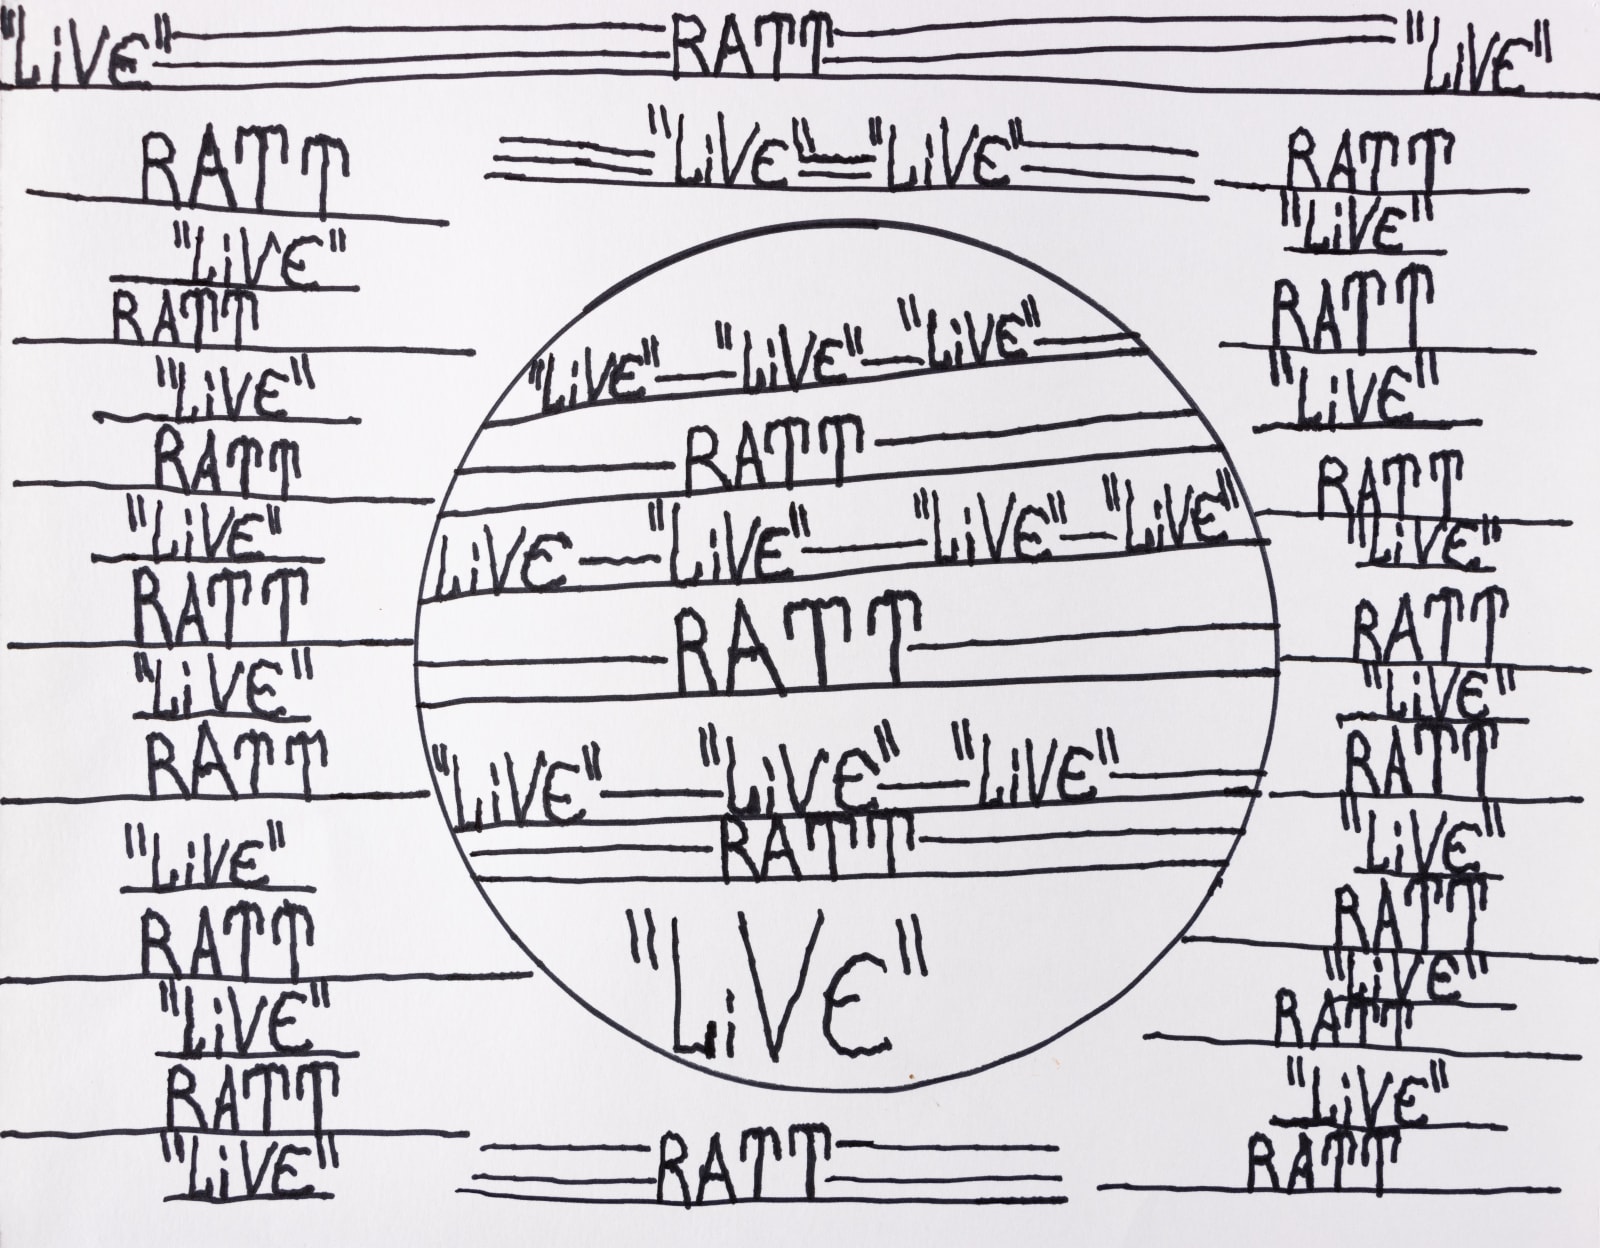 "LiVE" RATT "LiVE"
RATT
"LiVE"
RATT
"LiVE"
RATT
"LiVE"
RATT
"LiVE"
RATT
"LiVE"
RATT
"LiVE"
RATT
"LiVE"
"LiVE" "LiVE"
"LiVE" — "LiVE" — "LiVE"
RATT
LiVE — "LiVE" — "LiVE" — "LiVE"
RATT
"LiVE" — "LiVE" — "LiVE"
RATT
"LiVE"
RATT
RATT
"LiVE"
RATT
"LiVE"
RATT
"LiVE"
RATT
"LiVE"
RATT
"LiVE"
RATT
"LiVE"
RATT
"LiVE"
RATT